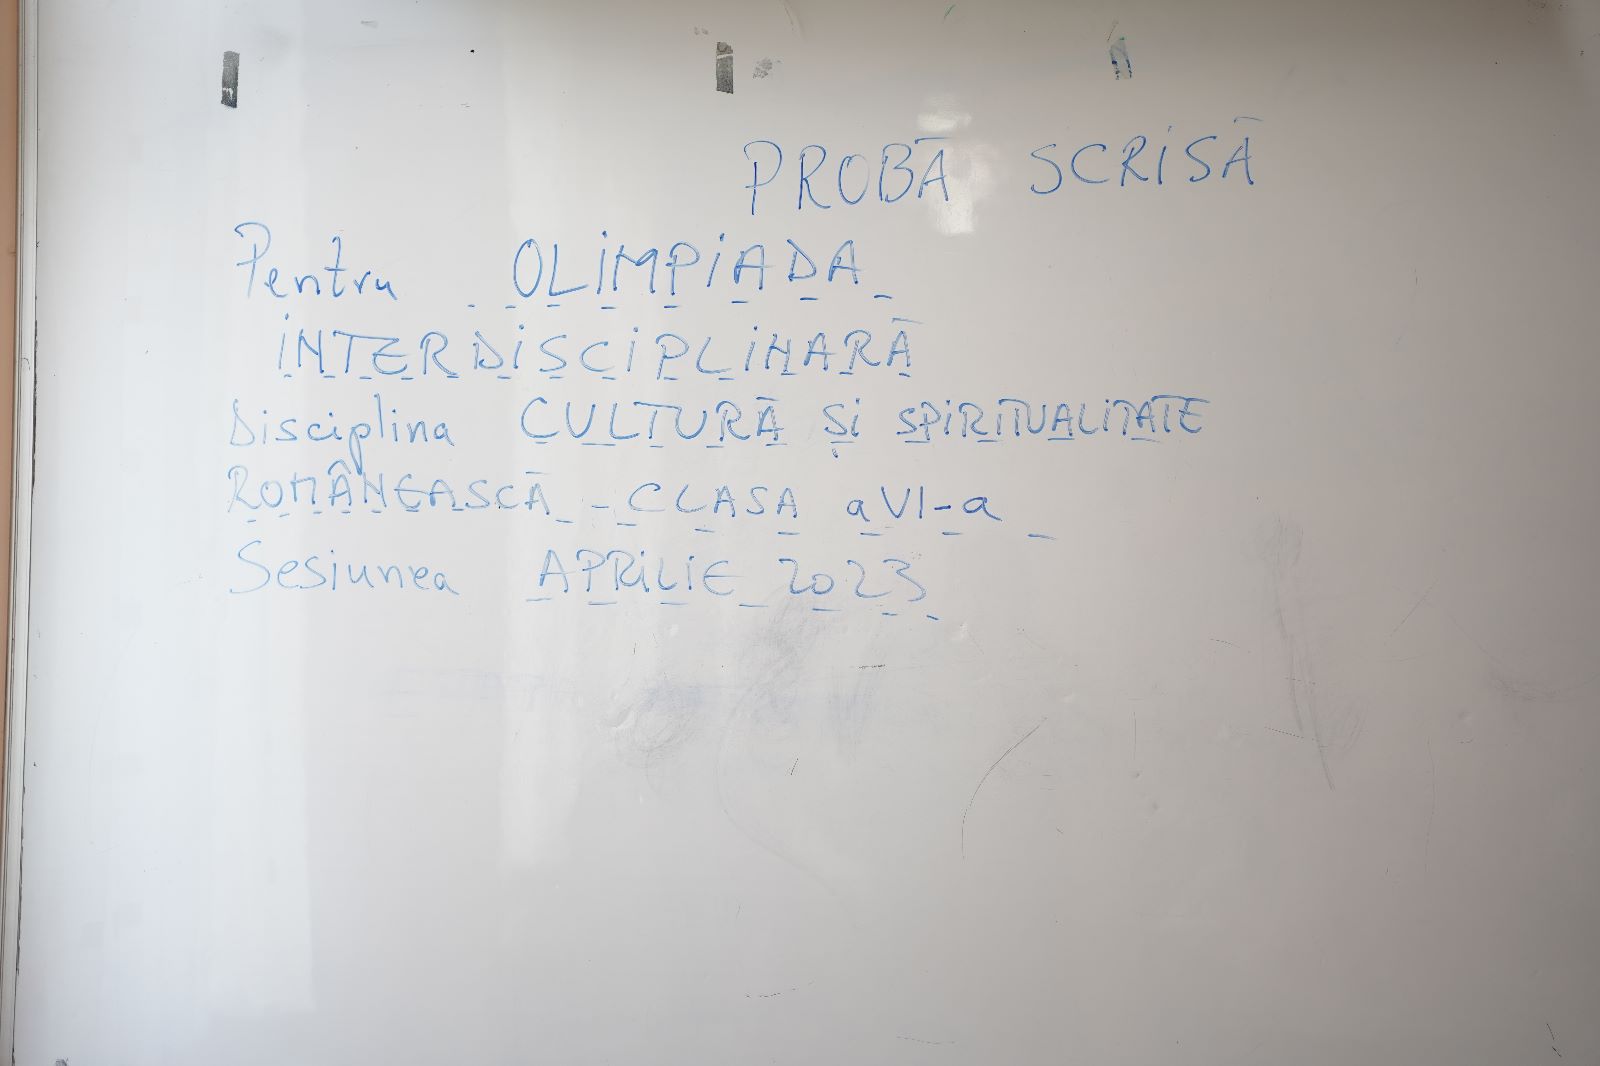 PROBĂ SCRISĂ
Pentru OLIMPIADA
INTERDISCIPLINARĂ
Disciplina CULTURĂ ȘI SPIRITUALITATE
ROMÂNEASCĂ - CLASA a VI-a
Sesiunea APRILIE 2023